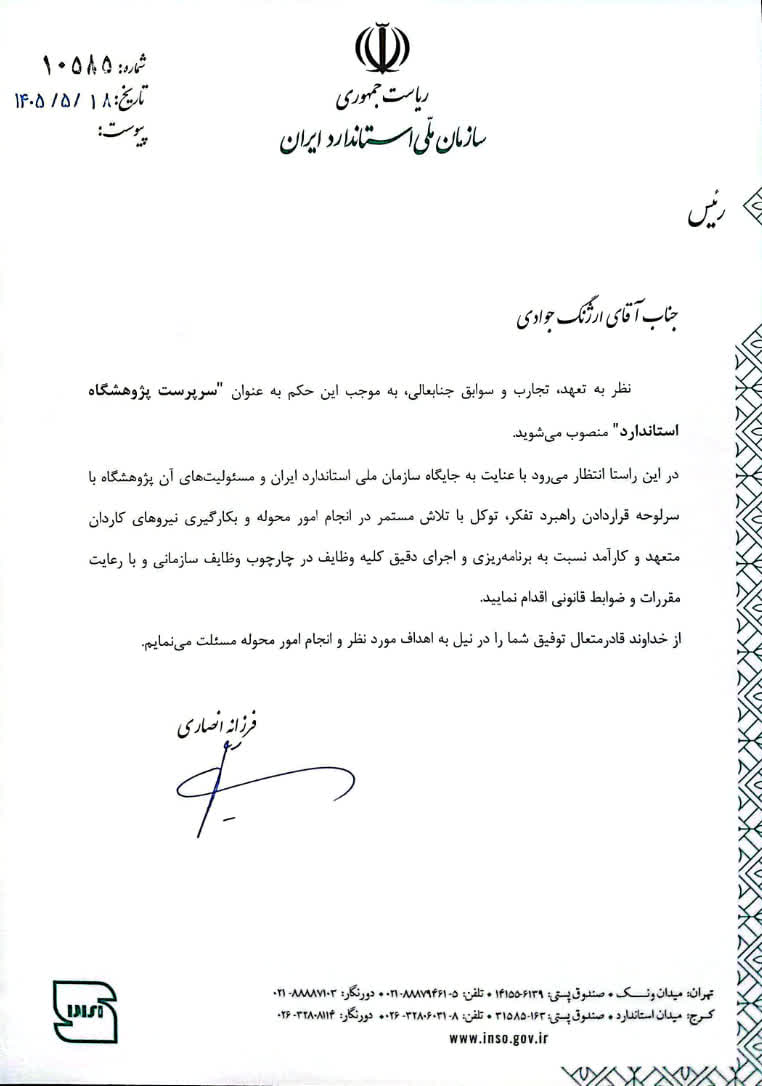 ریاست جمهوری
سازمان ملّی استاندارد ایران
شماره: ۱۰۵۸۵
تاریخ: ۱۴۰۵/۵/۱۸
پیوست:
رئیس
جناب آقای ارژنگ جوادی
نظر به تعهد، تجارب و سوابق جنابعالی، به موجب این حکم به عنوان "سرپرست پژوهشگاه
استاندارد" منصوب می‌شوید.
در این راستا انتظار می‌رود با عنایت به جایگاه سازمان ملی استاندارد ایران و مسئولیت‌های آن پژوهشگاه با
سرلوحه قراردادن راهبرد تفکر، توکل با تلاش مستمر در انجام امور محوله و بکارگیری نیروهای کاردان
متعهد و کارآمد نسبت به برنامه‌ریزی و اجرای دقیق کلیه وظایف در چارچوب وظایف سازمانی و با رعایت
مقررات و ضوابط قانونی اقدام نمایید.
از خداوند قادرمتعال توفیق شما را در نیل به اهداف مورد نظر و انجام امور محوله مسئلت می‌نمایم.
فرزانه انصاری
تهران: میدان ونـک • صندوق پستی: ۶۱۳۹-۱۴۱۵۵ • تلفن: ۵-۸۸۸۷۹۴۶۱-۰۲۱ • دورنگار: ۸۸۸۸۷۱۰۳-۰۲۱
کـرج: میدان استاندارد • صندوق پستی: ۱۶۳-۳۱۵۸۵ • تلفن: ۸-۳۲۸۰۶۰۳۱-۰۲۶ • دورنگار: ۳۲۸۰۸۱۱۴-۰۲۶
www.inso.gov.ir